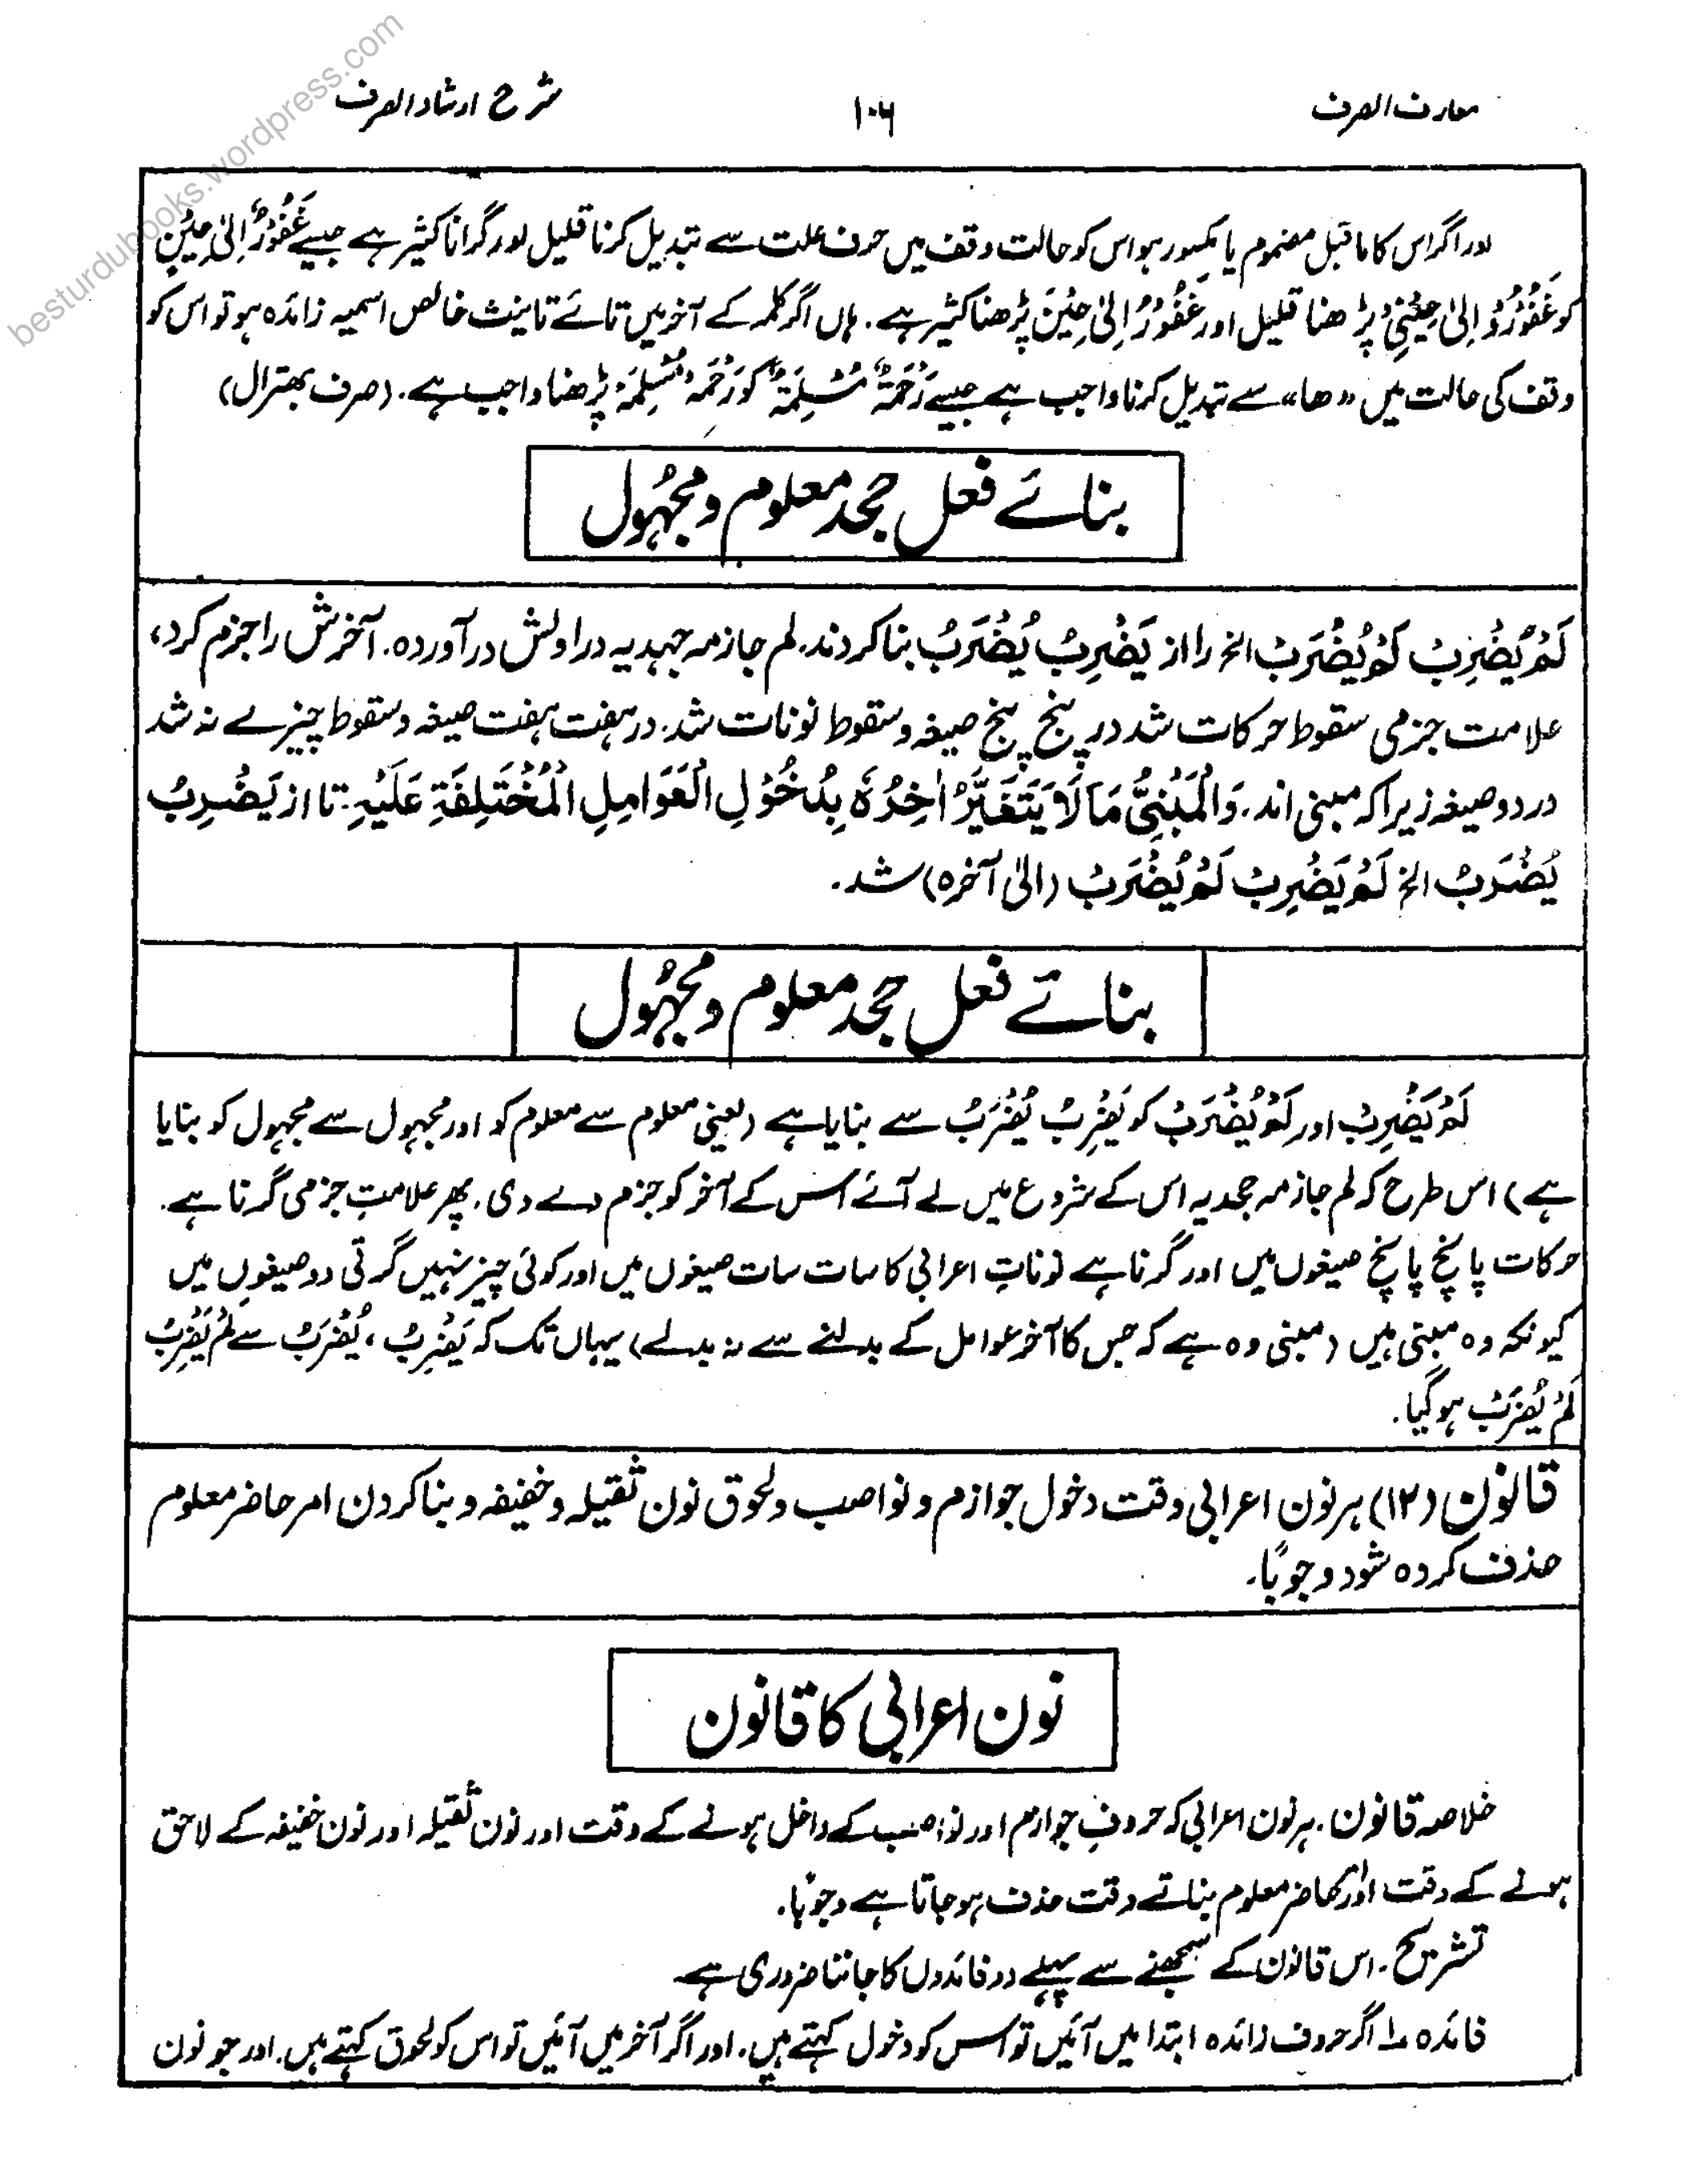 معارف الصرف
۱۰۶
شرح ارشاد الصرف
besturdubooks.wordpress.com
اور اگر اس کا ماقبل مضموم یا مکسور ہو اس کو حالت وقف میں حرف علت سے تبدیل کرنا قلیل اور گرانا کثیر ہے جیسے غَفُوْرٌ اِلیٰ حِیْنٍ
کو غَفُوْرُوْ اِلیٰ حِیْنِیْ پڑھنا قلیل اور غَفُوْرُ اِلیٰ حِیْنَ پڑھنا کثیر ہے. ہاں اگر کلمہ کے آخر میں تائے تانیث خالص اسمیہ زائدہ ہو تو اس کو
وقف کی حالت میں «ھا» سے تبدیل کرنا واجب ہے جیسے رَحْمَۃٌ مُسْلِمَۃٌ کو رَحْمَہْ مُسْلِمَہْ پڑھنا واجب ہے. (صرف بھترال)
بنائے فعل جحد معلوم و مجہُول
لَمْ یَضْرِبْ لَمْ یُضْرَبْ الخ را از یَضْرِبُ یُضْرَبُ بنا کردند. لم جازمہ جہدیہ در اولش در آوردہ. آخرش را جزم کرد،
علامت جزمی سقوط حرکات شد در پنج پنج صیغہ و سقوط نونات شد. در ہفت ہفت صیغہ و سقوط چیزے نہ شد
در دو صیغہ زیرا کہ مبنی اند. وَالْمَبْنِیُّ مَا لَا یَتَغَیَّرُ اٰخِرُہٗ بِدُخُوْلِ الْعَوَامِلِ الْمُخْتَلِفَۃِ عَلَیْہِ. تا از یَضْرِبُ
یُضْرَبُ الخ لَمْ یَضْرِبْ لَمْ یُضْرَبْ (الیٰ آخرہ) شد.
بنائے فعل جحد معلوم و مجہُول
لَمْ یَضْرِبْ اور لَمْ یُضْرَبْ کو یَضْرِبُ یُضْرَبُ سے بنایا ہے (یعنی معلوم سے معلوم کو اور مجہول سے مجہول کو بنایا
ہے) اس طرح کہ لم جازمہ جحدیہ اس کے شروع میں لے آئے اس کے آخر کو جزم دے دی. پھر علامتِ جزمی گرنا ہے.
حرکات پانچ پانچ صیغوں میں اور گرنا ہے نوناتِ اعرابی کا سات سات صیغوں میں اور کوئی چیز نہیں گرتی دو صیغوں میں
کیونکہ وہ مبنی ہیں (مبنی وہ ہے کہ جس کا آخر عوامل کے بدلنے سے نہ بدلے) یہاں تک کہ یَضْرِبُ، یُضْرَبُ سے لَمْ یَضْرِبْ
لَمْ یُضْرَبْ ہو گیا.
قانون (۱۲) ہر نون اعرابی وقت دخول جوازم و نواصب و لحوق نون ثقیلہ و خفیفہ و بنا کردن امر حاضر معلوم
حذف کردہ شود وجوبًا.
نون اعرابی کا قانون
خلاصہ قانون. ہر نون اعرابی کہ حروفِ جوازم اور نواصب کے داخل ہونے کے وقت اور نون ثقیلہ اور نون خفیفہ کے لاحق
ہونے کے وقت اور امر حاضر معلوم بناتے وقت حذف ہو جاتا ہے وجوبًا.
تشریح. اس قانون کے سمجھنے سے پہلے دو فائدوں کا جاننا ضروری ہے
فائدہ ۱ اگر حروف زائدہ ابتدا میں آئیں تو اس کو دخول کہتے ہیں. اور اگر آخر میں آئیں تو اس کو لحوق کہتے ہیں. اور جو نون